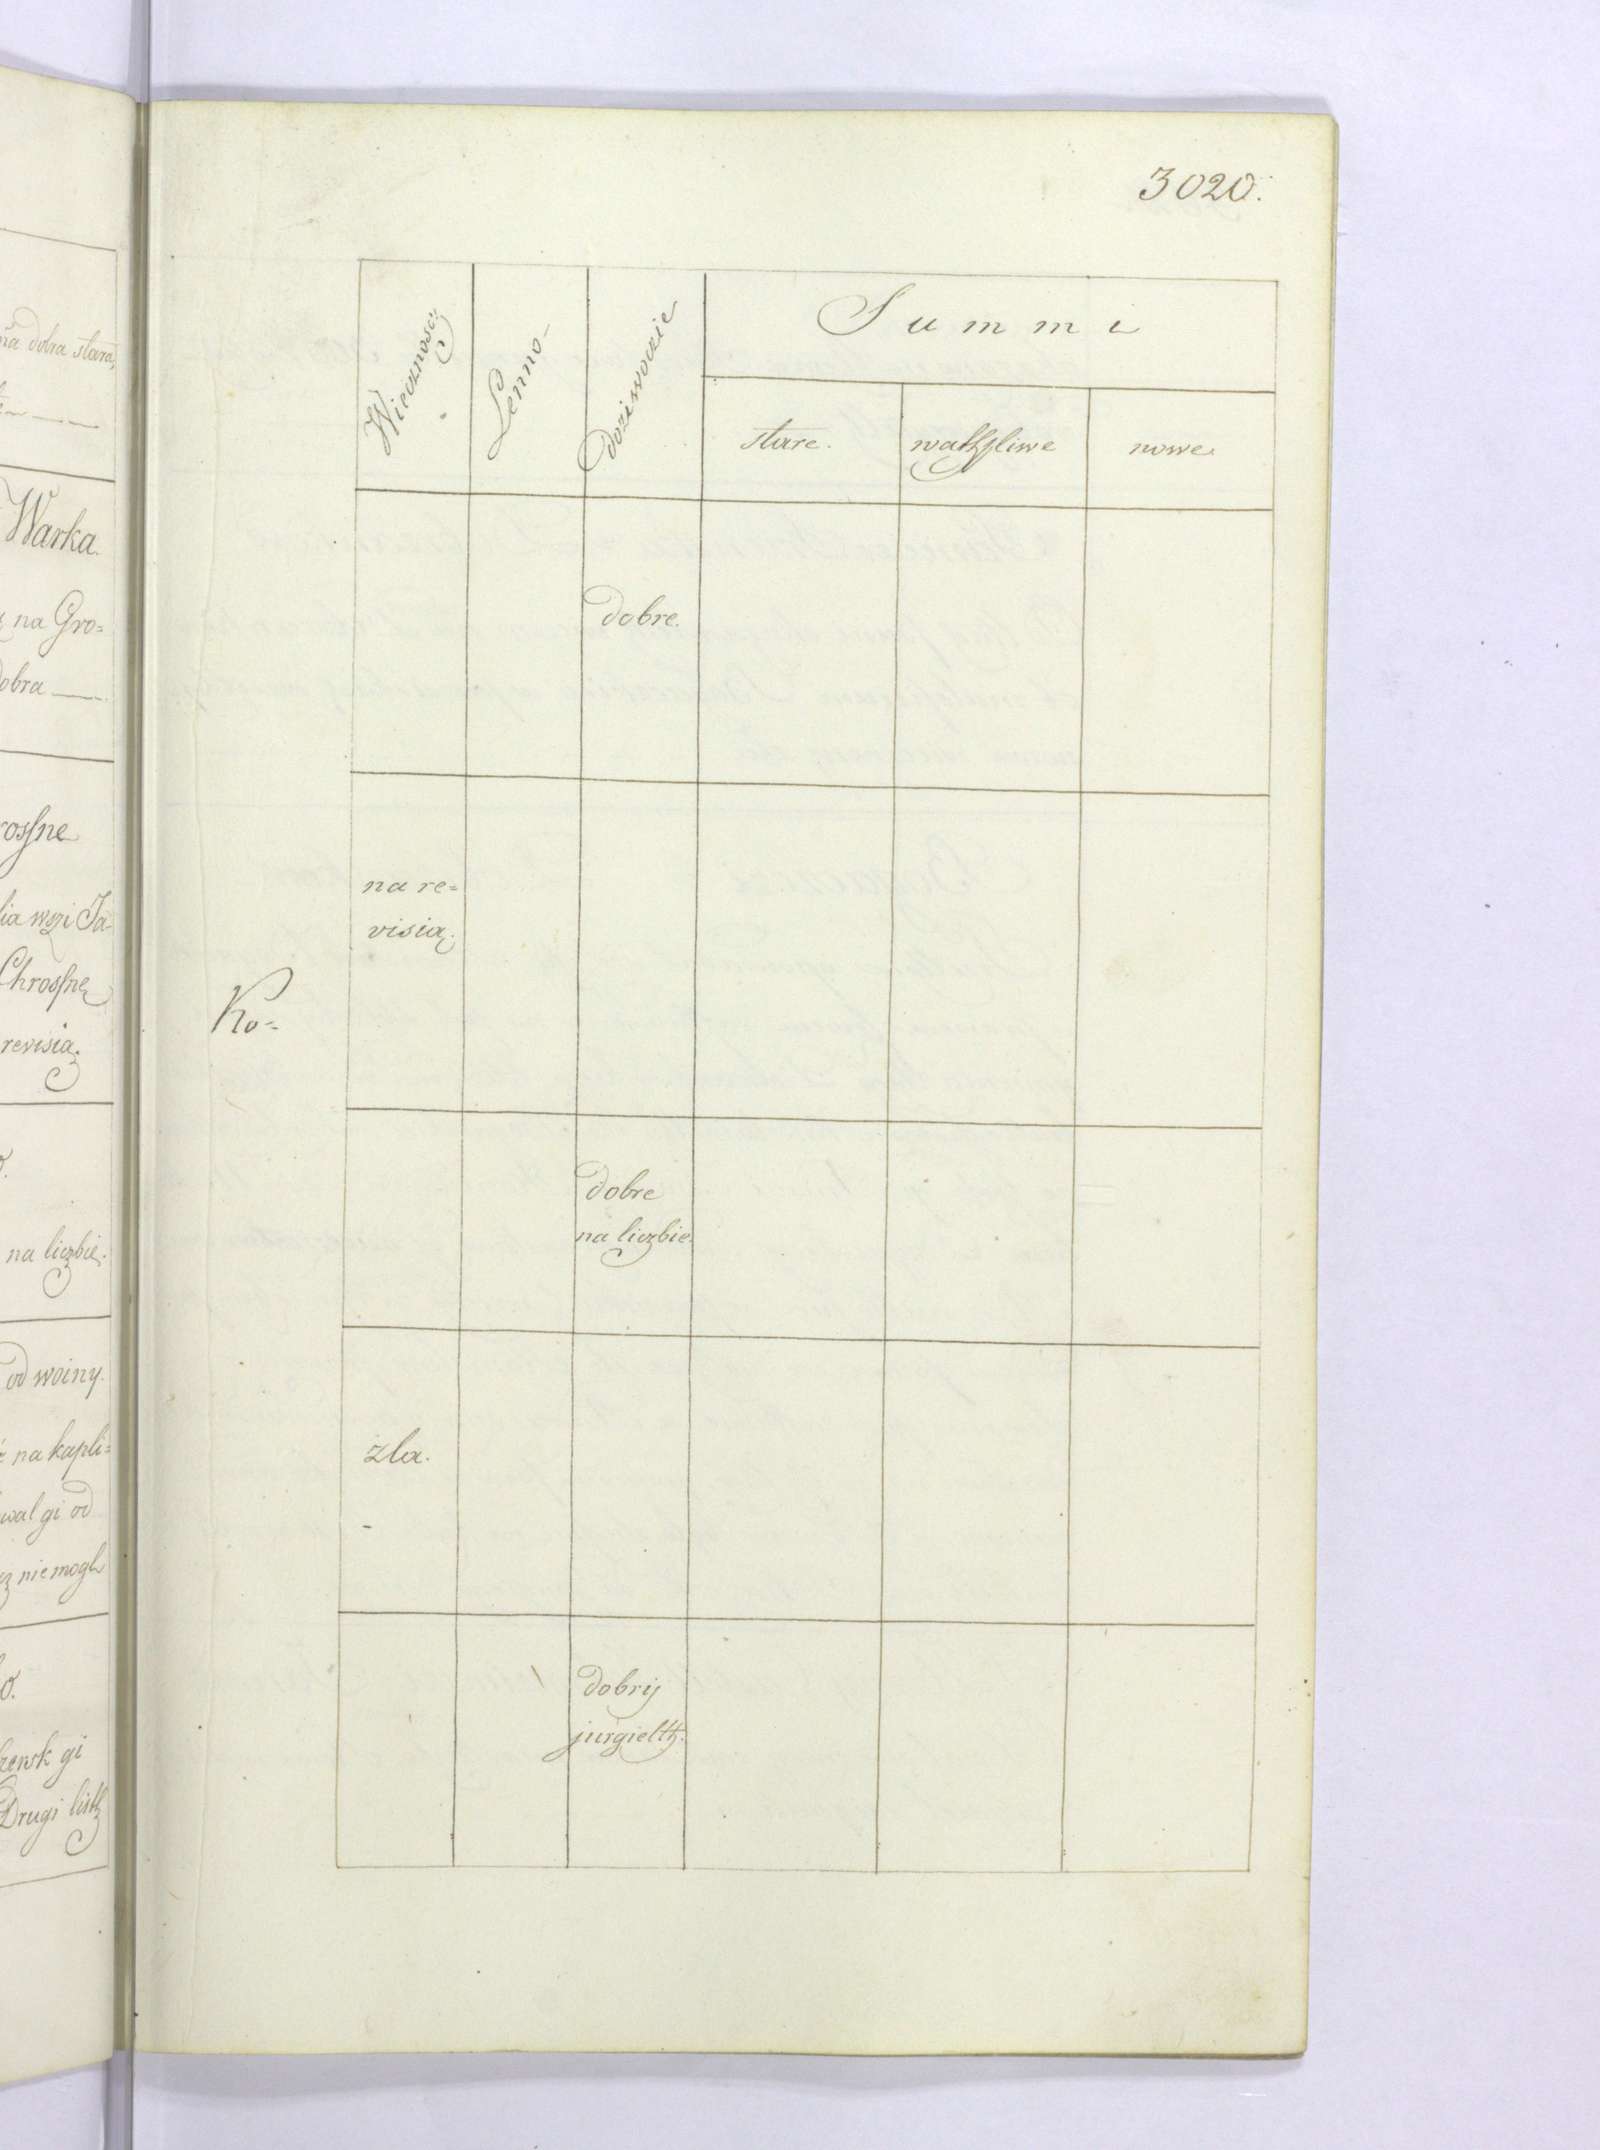 na dobra stara,
Warka.
na Gro=
dobra —
rossne
lia wszi Ja-
Chrossne
revisią.
na liczbie.
od woiny.
na kapli=
wal gi od
nie mogł
gi
Drugi listh
3020.
Wieczność.
Lenno-
dozivoczie
Summi
stare.
wathpliwe
nowe.
dobre.
na re=
visią.
Ko=
dobre
na liczbie.
zla.
-
dobrij
jurgielth.